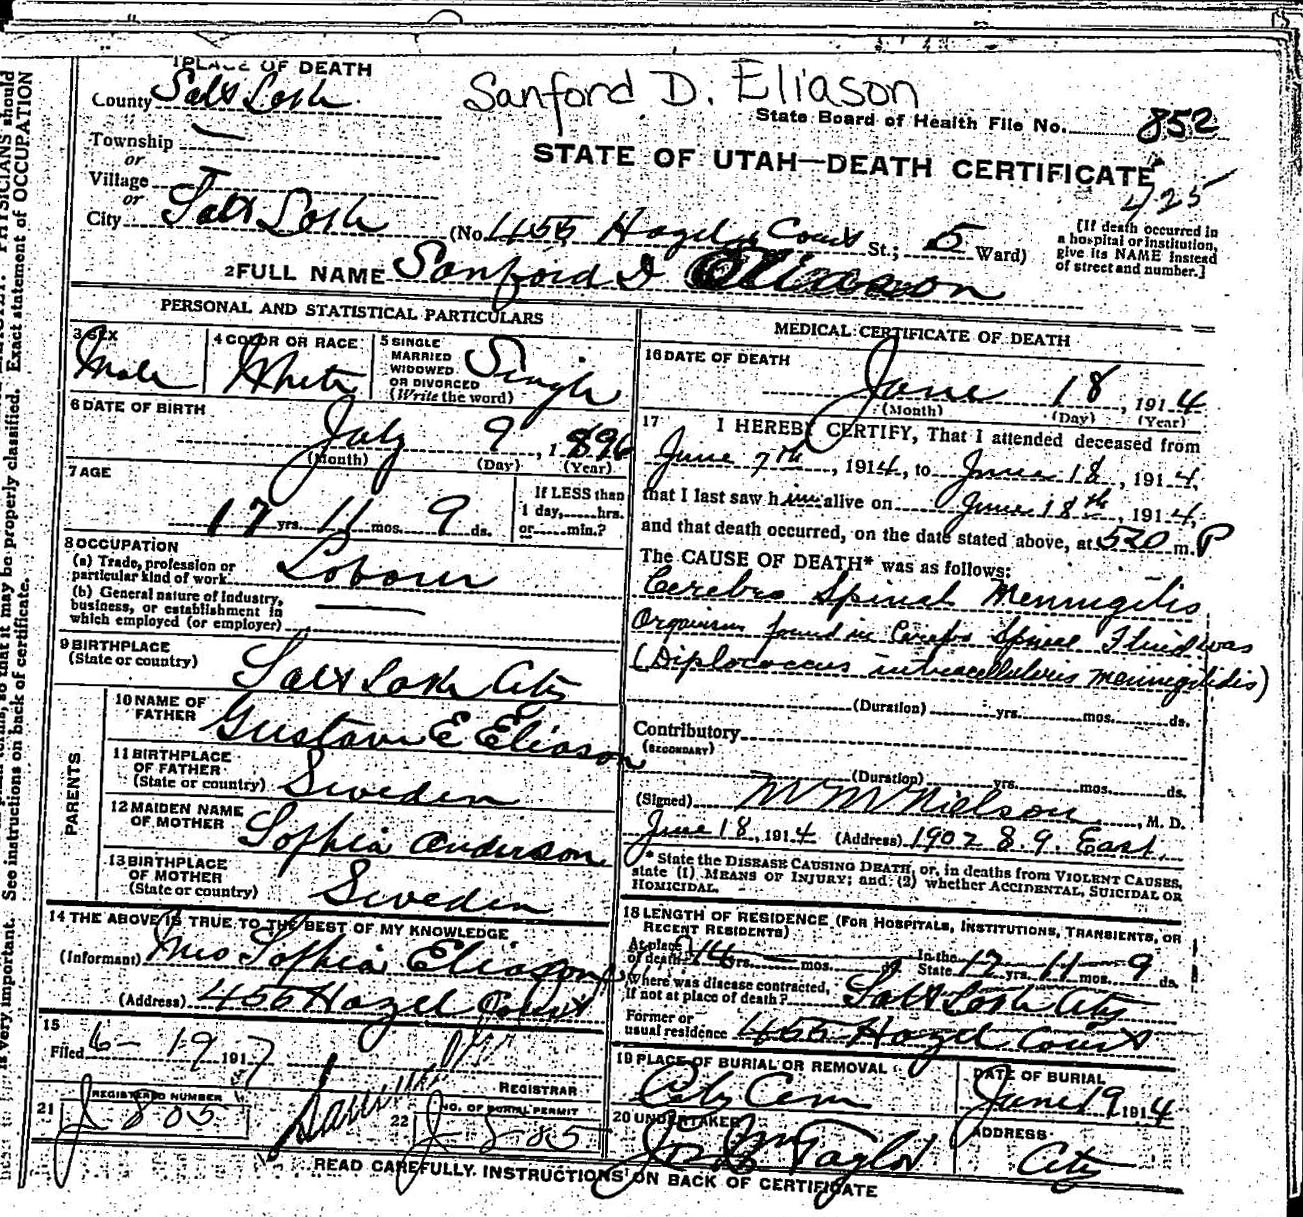 1 PLACE OF DEATH
Sanford D. Eliason
County Salt Lake
State Board of Health File No. 852
Township
or
STATE OF UTAH—DEATH CERTIFICATE
Village
or
425
City Salt Lake (No. 455 Hazel Court St.; 5 Ward)
[If death occurred in
a hospital or institution,
give its NAME instead
of street and number.]
2 FULL NAME Sanford D Eliason
PERSONAL AND STATISTICAL PARTICULARS
3 SEX
Male
4 COLOR OR RACE
White
5 SINGLE
MARRIED
WIDOWED
OR DIVORCED
(Write the word)
Single
6 DATE OF BIRTH
July 9, 1896
(Month) (Day) (Year)
7 AGE
17 yrs. 11 mos. 9 ds.
If LESS than
1 day, hrs.
or min.?
8 OCCUPATION
(a) Trade, profession or
particular kind of work
Labour
(b) General nature of Industry,
business, or establishment in
which employed (or employer)
9 BIRTHPLACE
(State or country)
Salt Lake City
PARENTS
10 NAME OF
FATHER
Gustave E Eliason
11 BIRTHPLACE
OF FATHER
(State or country)
Sweden
12 MAIDEN NAME
OF MOTHER
Sophia Anderson
13 BIRTHPLACE
OF MOTHER
(State or country)
Sweden
14 THE ABOVE IS TRUE TO THE BEST OF MY KNOWLEDGE
(Informant) Mrs Sophia Eliason
(Address) 455 Hazel Court
15
Filed 6-19 1917
REGISTRAR
REGISTERED NUMBER
21 J 805
22 NO. OF BURIAL PERMIT
MEDICAL CERTIFICATE OF DEATH
16 DATE OF DEATH
June 18, 1914
(Month) (Day) (Year)
17 I HEREBY CERTIFY, That I attended deceased from
June 7th, 1914, to June 18, 1914,
that I last saw him alive on June 18th, 1914,
and that death occurred, on the date stated above, at 520 m. P
The CAUSE OF DEATH* was as follows:
Cerebro Spinal Meningitis
Organism found in Cerebro Spinal Fluid was
(Diplococcus intracellularis meningitidis)
(Duration) yrs. mos. ds.
Contributory
(SECONDARY)
(Duration) yrs. mos. ds.
(Signed) M M Nielson, M. D.
June 18, 1914 (Address) 1902 S. 9. East.
* State the DISEASE CAUSING DEATH, or, in deaths from VIOLENT CAUSES,
state (1) MEANS OF INJURY; and (2) whether ACCIDENTAL, SUICIDAL OR
HOMICIDAL.
18 LENGTH OF RESIDENCE (FOR HOSPITALS, INSTITUTIONS, TRANSIENTS, OR
RECENT RESIDENTS)
At place
of death 14 yrs. mos.
In the
State 17 yrs. 11 mos. 9 ds.
Where was disease contracted,
if not at place of death? Salt Lake City
Former or
usual residence 455 Hazel Court
19 PLACE OF BURIAL OR REMOVAL
City Cem
DATE OF BURIAL
June 19 1914
20 UNDERTAKER
Taylor
ADDRESS
City
READ CAREFULLY INSTRUCTIONS ON BACK OF CERTIFICATE
is very important. See instructions on back of certificate.
so that it may be properly classified. Exact statement of OCCUPATION
PHYSICIANS should